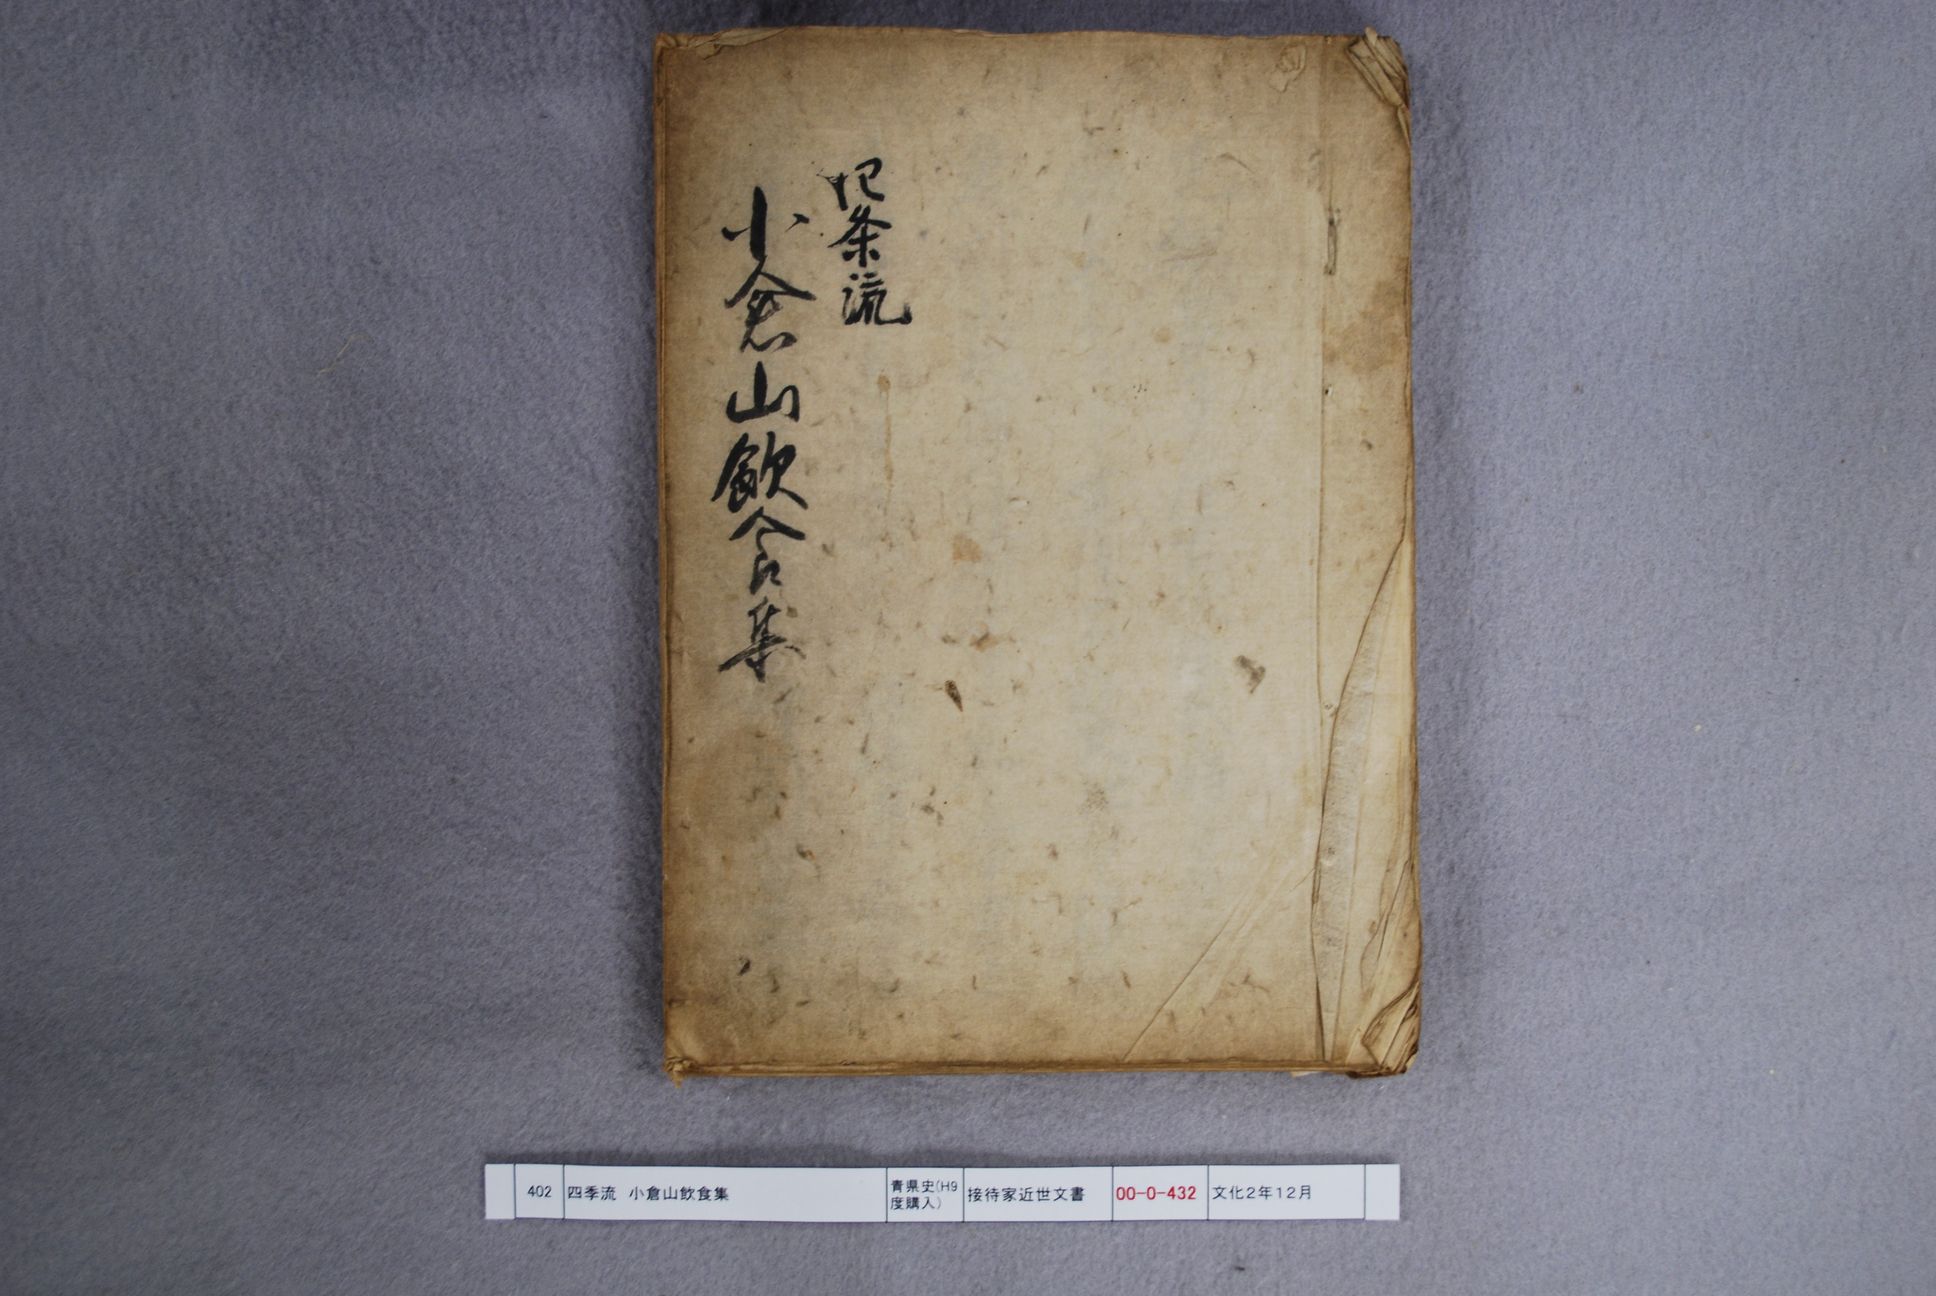 四条流
小倉山飲食集
402 四季流 小倉山飲食集 青県史(H9度購入) 接待家近世文書 00-0-432 文化2年12月